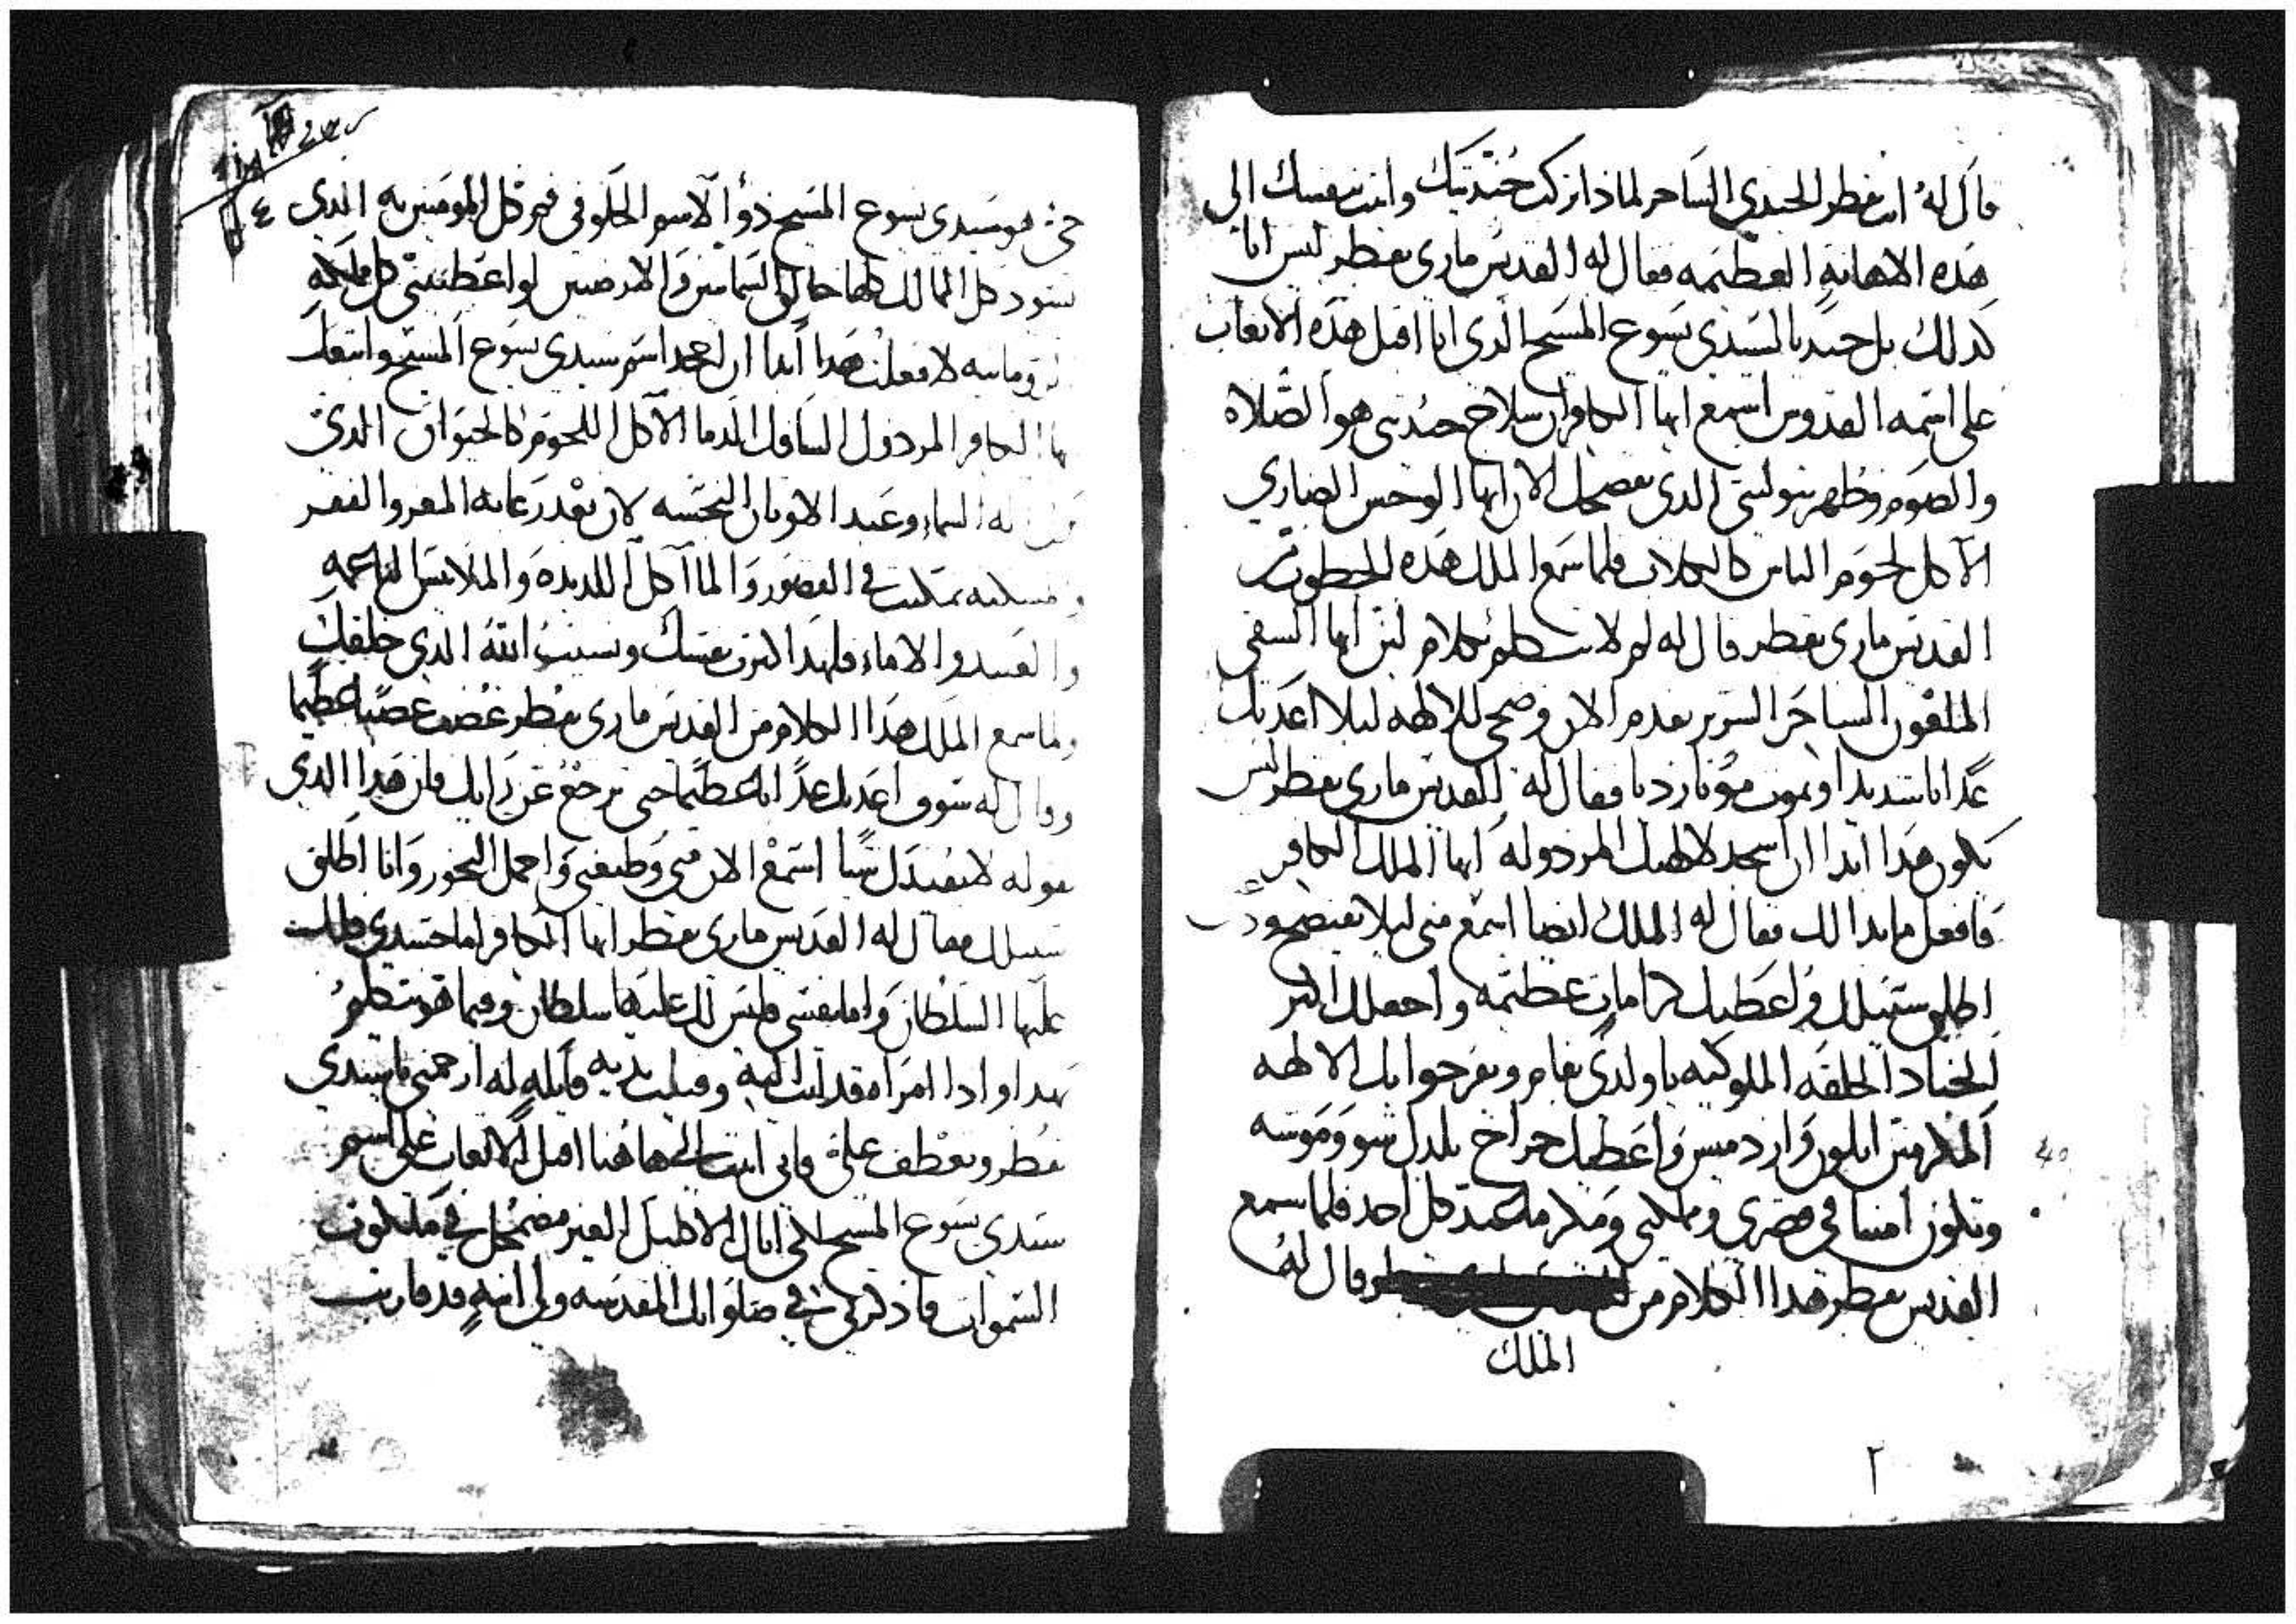 قال له انت بقطر الجندي الساحر لماذا تركت جنديتك واتيت بنفسك الي
هذه الاهانه العظيمه فقال له القديس ماري بقطر ليس انا
كدلك بل جنديا لسيدي يسوع المسيح الدي انا اقبل هذه الاتعاب
على اسمه القدوس اسمع ايها الكافر ان سلاح جنديتي هو الصلاه
والصوم وطهر بتوليتي الدي يفضحك الان ايها الوحش الضاري
الآكل لحوم الناس كالكلاب فلما سمع الملك هذه الخطوب من
القديس ماري بقطر قال له لم لا تتكلم بكلام لين ايها الشقي
الملعون الساحر الشرير تقدم الان وضحي للالهه ليلا اعذبك
عذابا شديدا وتموت موتا رديا فقال له القديس ماري بقطر ليس
يكون هدا ابدا ان اسجد لالهتك المردوله ايها الملك الكافر
فافعل ما بدا لك فقال له الملك ايضا اسمع مني ليلا
اطلق سبيلك واعطيك كرامات عظيمه واجعلك اكبر
اجناد الحلقه الملوكيه يا ولدي بقام ويفرحوا بك الالهه
المكرمين ابلون واردميس واعطيك خراج
وتكون امينا في قصري ومملكتي ومكرما عند كل احد فلما سمع
القديس بقطر هدا الكلام من قال له
الملك
٢
٤
حي هو سيدي يسوع المسيح ذو الاسم الحلو في فم كل المومنين به الدي
يسود كل الممالك كلها خالق السماين والارضين لو اعطيتني كل مملكه
لا فعلت هدا ابدا ان اجحد اسم سيدي يسوع المسيح واتبعك
ايها الكافر المردول السافك الدما الآكل اللحوم كالحيوان الدي
السماء وعبد الاوتان النجسه لان بعد رعايه المعز والفقر
تمكنت في القصور والمآكل اللديده والملابس الناعمه
والعبيد والاماء فلهدا تكبرت نفسك ونسيت الله الدي خلقك
ولما سمع الملك هدا الكلام من القديس ماري بقطر غضب غضبا عظيما
وقال له سوف اعدبك عدابا عظيما حتى ترجع عن رايك فان هدا الدي
تقوله لا يفيدك شيا اسمع الان مني وطيعني واحمل البخور وانا اطلق
سبيلك فقال له القديس ماري بقطر ايها الكافر اما جسدي فلك
عليها السلطان واما نفسي فليس لك عليها سلطان وفيما هو يتكلم
بهدا وادا امراه قد اتت اليه وقبلت يديه قايله له ارحمني يا سيدي
بقطر وتعطف علي فاني اتيت الى هاهنا اقبل الاتعاب على اسم
سيدي يسوع المسيح لكي انال الاكليل الغير مضمحل في ملكوت
السموات فاذكرني في صلواتك المقدسه ولي ابنه قد قاربت